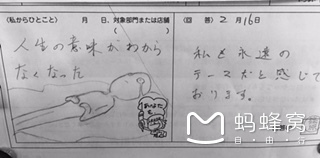 (私からひとこと) 月 日、対象部門または店舗
( )
人生の意味がわから
なくなった
(回 答) 2月16日
私も永遠の
テーマだと感じて
おります。
蚂蜂窝
自由行